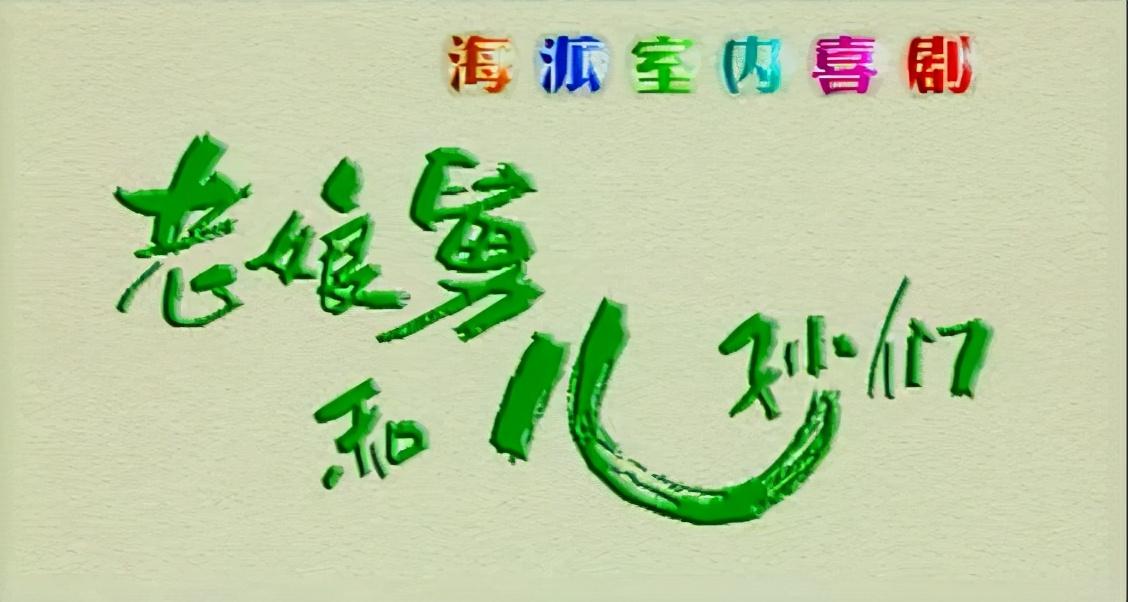 海派室内喜剧
老娘舅
和儿孙们